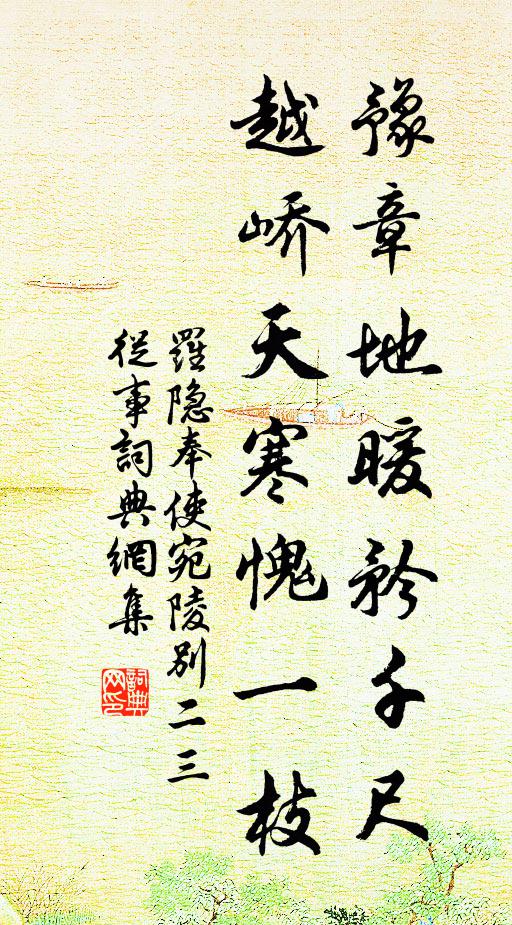 豫章地暖矜千尺
越嶠天寒愧一枝
羅隐奉使宛陵別二三
從事詞典網集
詞典网印